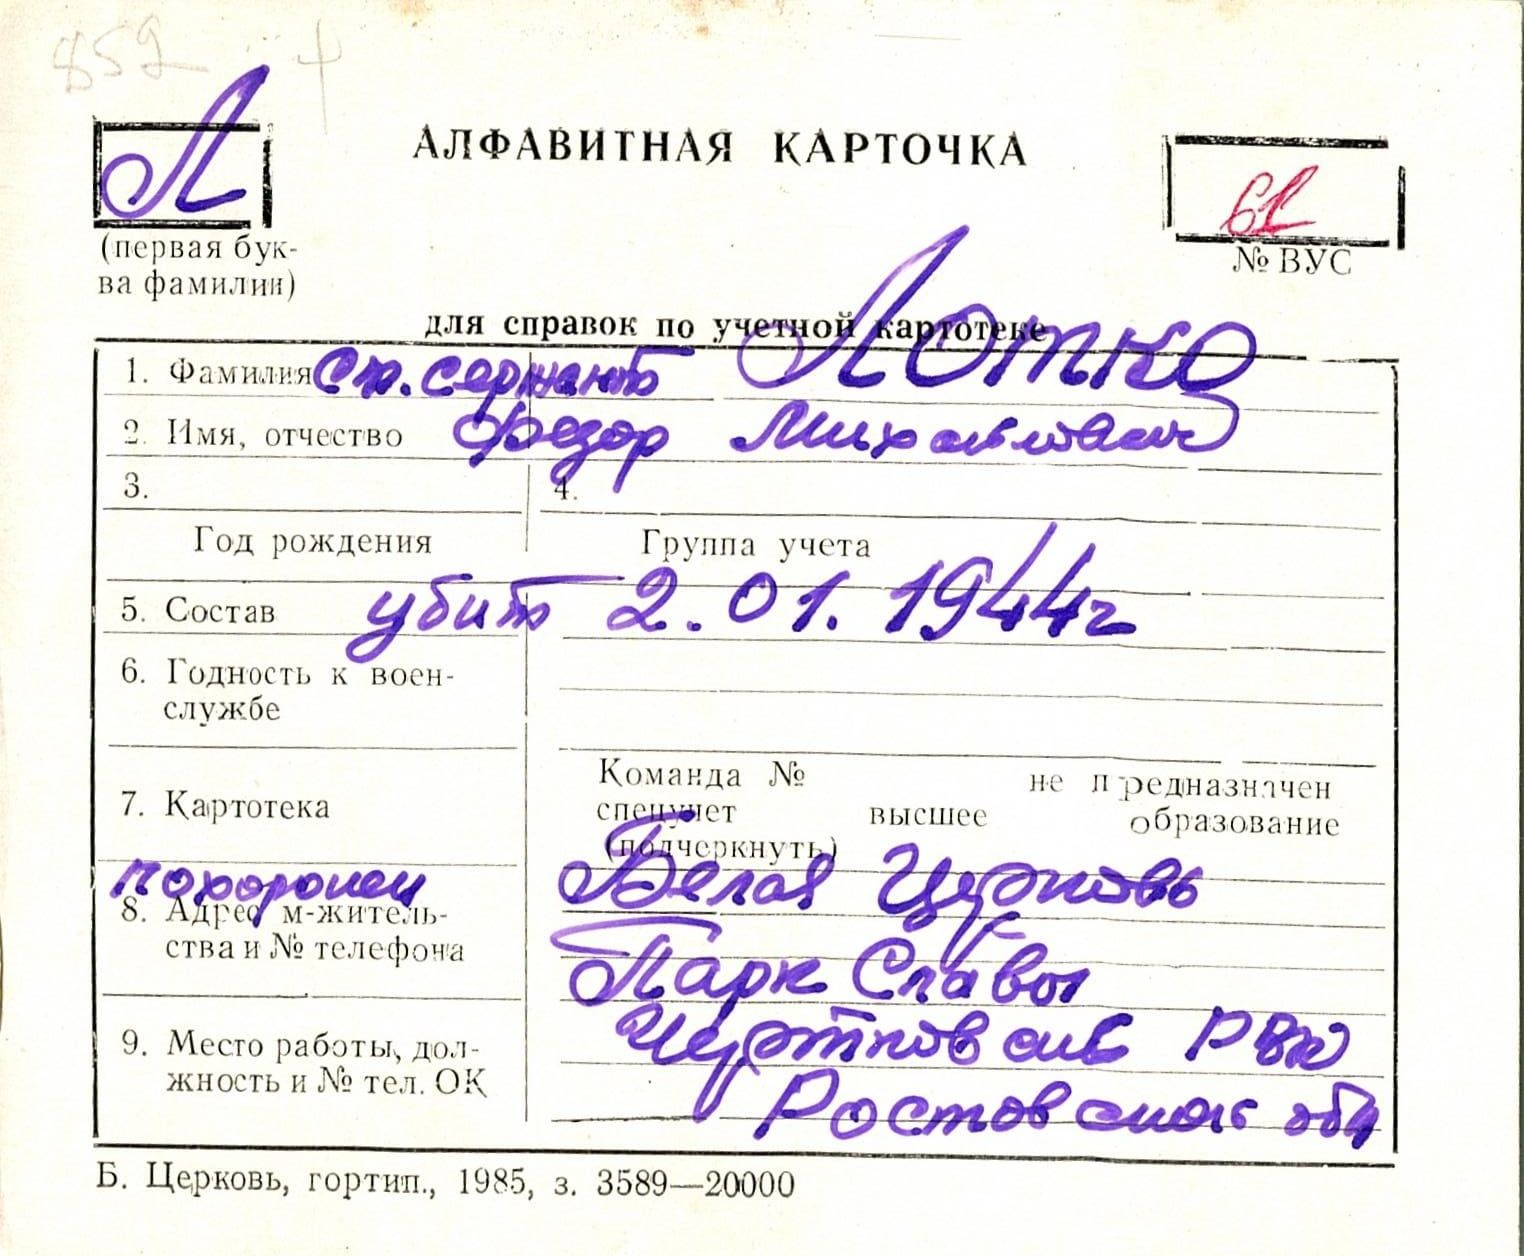 852 +
Л
АЛФАВИТНАЯ КАРТОЧКА
(первая бук-
ва фамилии)
№ ВУС
для справок по учетной картотеке
1. Фамилия ст. сержант Лотко
2. Имя, отчество Федор Михайлович
3. 4.
Год рождения Группа учета
5. Состав убит 2.01.1944г
6. Годность к воен-
службе
7. Картотека
Команда № не предназначен
спецучет высшее образование
(подчеркнуть)
похоронен Белая Церковь
8. Адрес м-житель-
ства и № телефона
Парк Славы
Чертковский РВК
9. Место работы, дол-
жность и № тел. ОК
Ростовская обл
Б. Церковь, гортип., 1985, з. 3589—20000